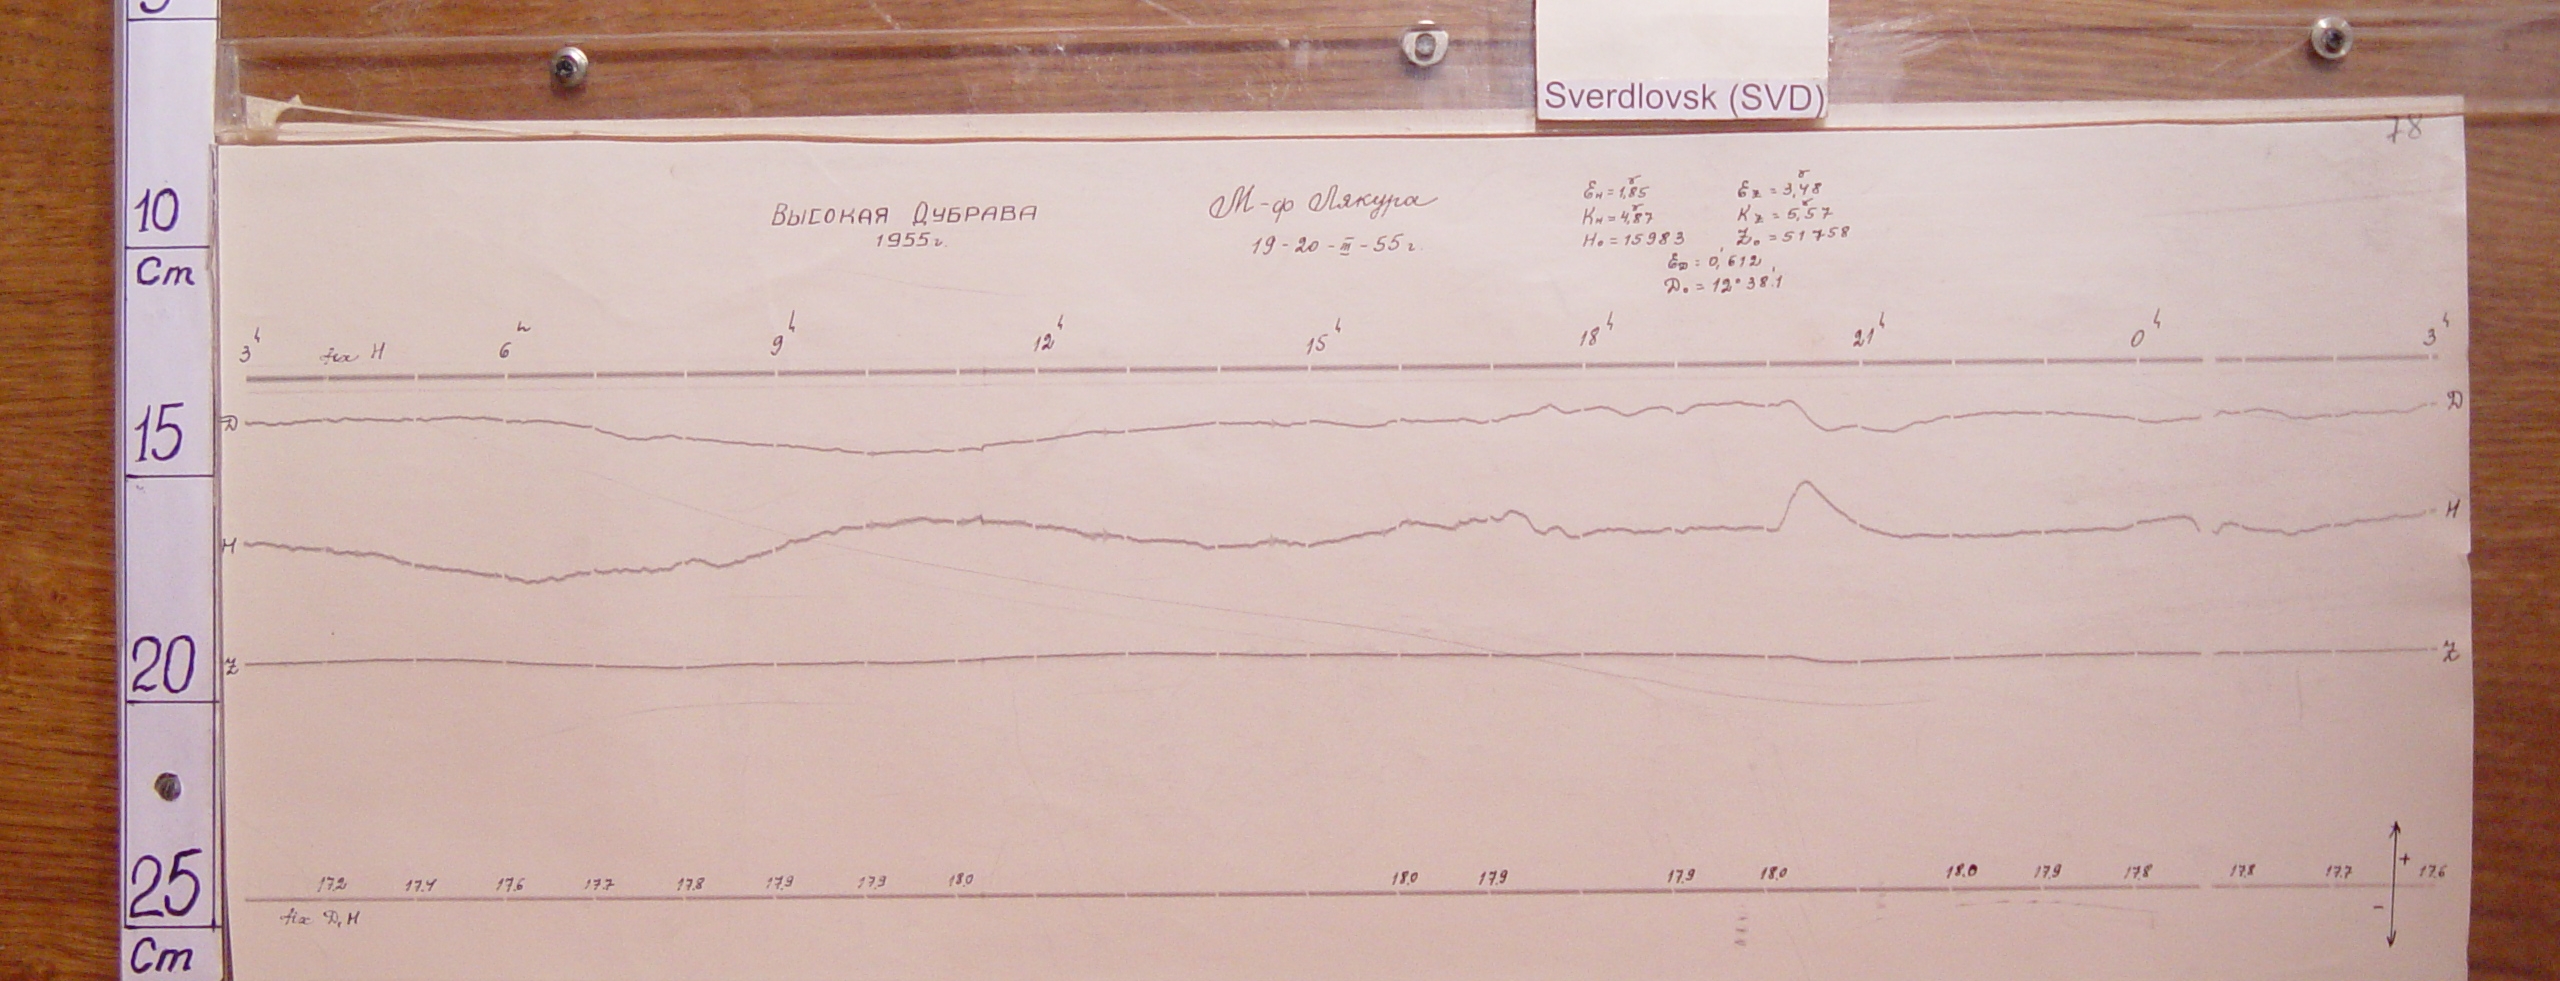 Sverdlovsk (SVD)
78
10
Cm
15
20
25
Cm
ВЫСОКАЯ ДУБРАВА
1955г.
М-ф Лякура
19-20-III-55г.
Ен=1,85γ Ez=3,48γ
Кн=4,87γ Kz=5,57γ
Н₀=15983 Z₀=51758
ЕD=0,′612
D₀=12°38,′1
3ч fix H 6ч 9ч 12ч 15ч 18ч 21ч 0ч 3ч
D D
H H
Z Z
17.2 17.4 17.6 17.7 17.8 17.9 17.9 18.0 18.0 17.9 17.9 18.0 18.0 17.9 17.8 17.8 17.7 17.6
fix D,H
+
-